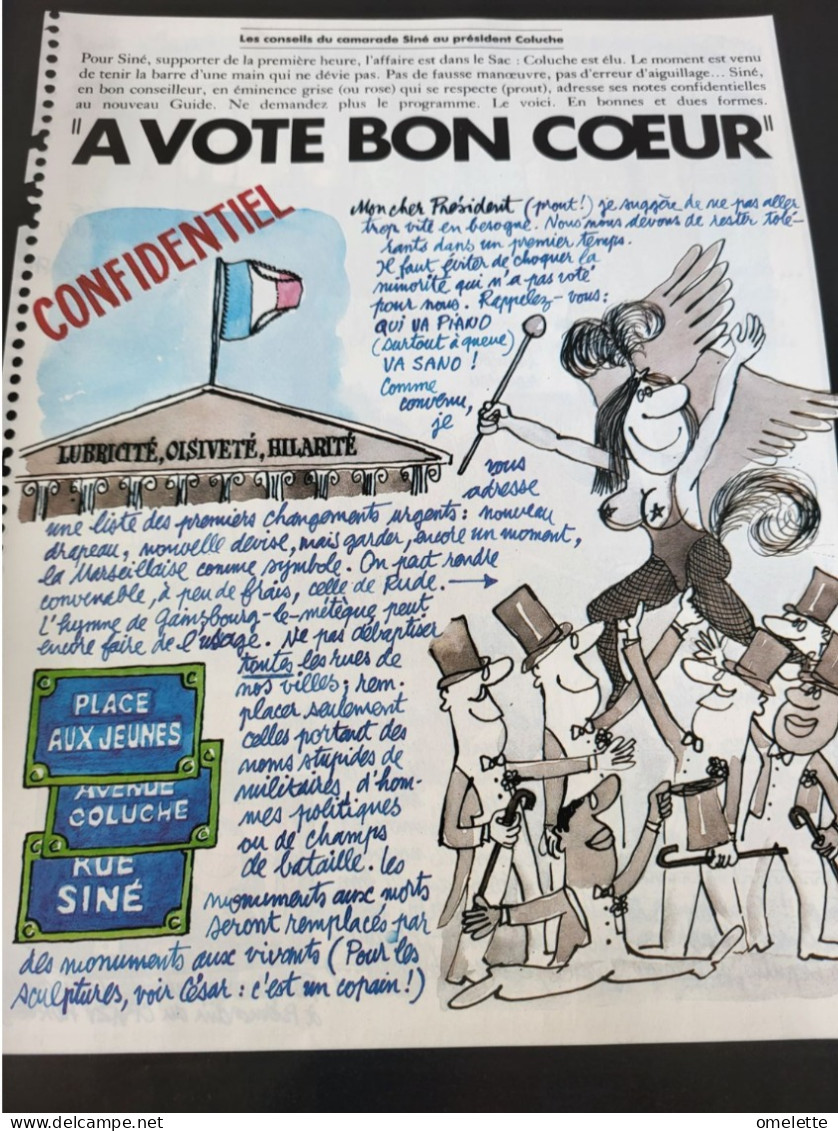 Les conseils du camarade Siné au président Coluche
Pour Siné, supporter de la première heure, l'affaire est dans le Sac : Coluche est élu. Le moment est venu
de tenir la barre d'une main qui ne dévie pas. Pas de fausse manœuvre, pas d'erreur d'aiguillage... Siné,
en bon conseiller, en éminence grise (ou rose) qui se respecte (prout), adresse ses notes confidentielles
au nouveau Guide. Ne demandez plus le programme. Le voici. En bonnes et dues formes.
"A VOTE BON CŒUR"
CONFIDENTIEL
Mon cher Président (prout!) je suggère de ne pas aller
trop vite en besogne. Nous nous devons de rester tolé-
rants dans un premier temps.
Il faut éviter de choquer la
minorité qui n'a pas voté
pour nous. Rappelez-vous:
QUI VA PIANO
(surtout à queue)
VA SANO !
Comme
convenu,
je
LUBRICITÉ, OISIVETÉ, HILARITÉ
vous
adresse
une liste des premiers changements urgents : nouveau
drapeau, nouvelle devise, mais garder, encore un moment,
la Marseillaise comme symbole. On peut rendre
convenable, à peu de frais, celle de Rude. →
L'hymne de Gainsbourg-le-métèque peut
encore faire de l'usage. Ne pas débaptiser
toutes les rues de
nos villes ; rem-
placer seulement
celles portant des
noms stupides de
militaires, d'hom-
mes politiques
ou de champs
de bataille. Les
monuments aux morts
seront remplacés par
des monuments aux vivants (Pour les
sculptures, voir César : c'est un copain !)
PLACE
AUX JEUNES
AVENUE
COLUCHE
RUE
SINÉ
omelette